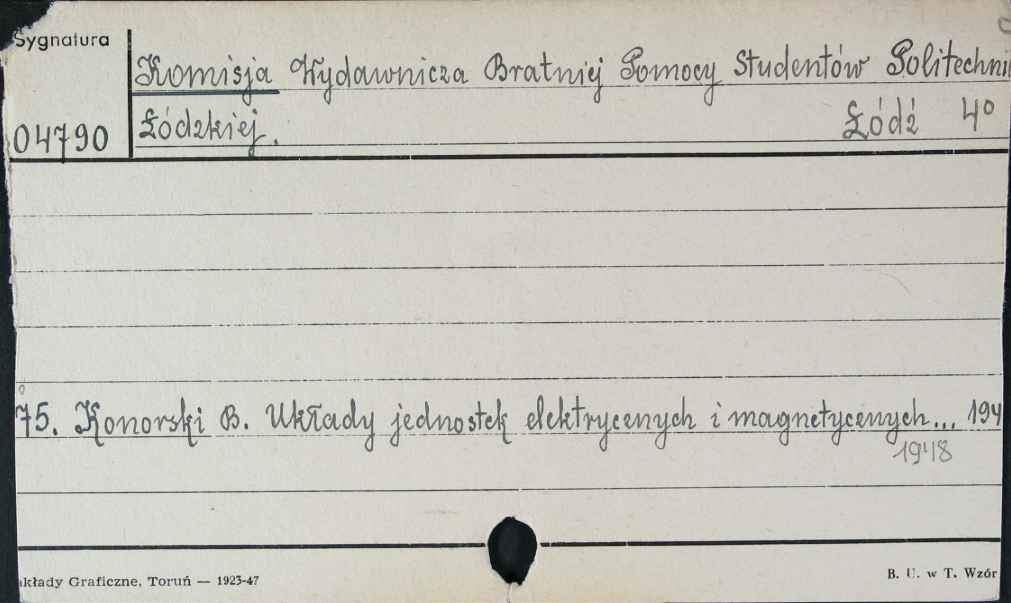 Sygnatura
Komisja Wydawnicza Bratniej Pomocy Studentów Politechni
04790 Łódzkiej. Łódź 4°
75. Konorski B. Układy jednostek elektrycznych i magnetycznych... 194
1948
kłady Graficzne, Toruń — 1923-47 B. U. w T. Wzór